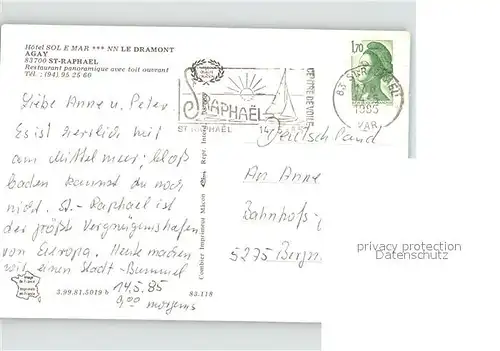 Hôtel SOL E MAR *** NN LE DRAMONT
AGAY
83700 ST-RAPHAEL
Restaurant panoramique avec toit ouvrant
Tél. : (94) 95 25 60
1,70
RAPHAËL
ST RAPHAËL
1985
VAR
Liebe Anne u. Peter.
Es ist herrlich hier
am Mittelmeer; bloß
baden kannst du noch
nicht. St.-Raphael ist
der größte Vergnügungshafen
von Europa. Heute machen
wir einen Stadt-Bummel
14.5.85
9,00 morgens
Deutschland
An Anne
Bahnhofs-
5275 Bergn
Combier Imprimeur Mâcon
3.99.81.5019 b
83.118
privacy protection
Datenschutz